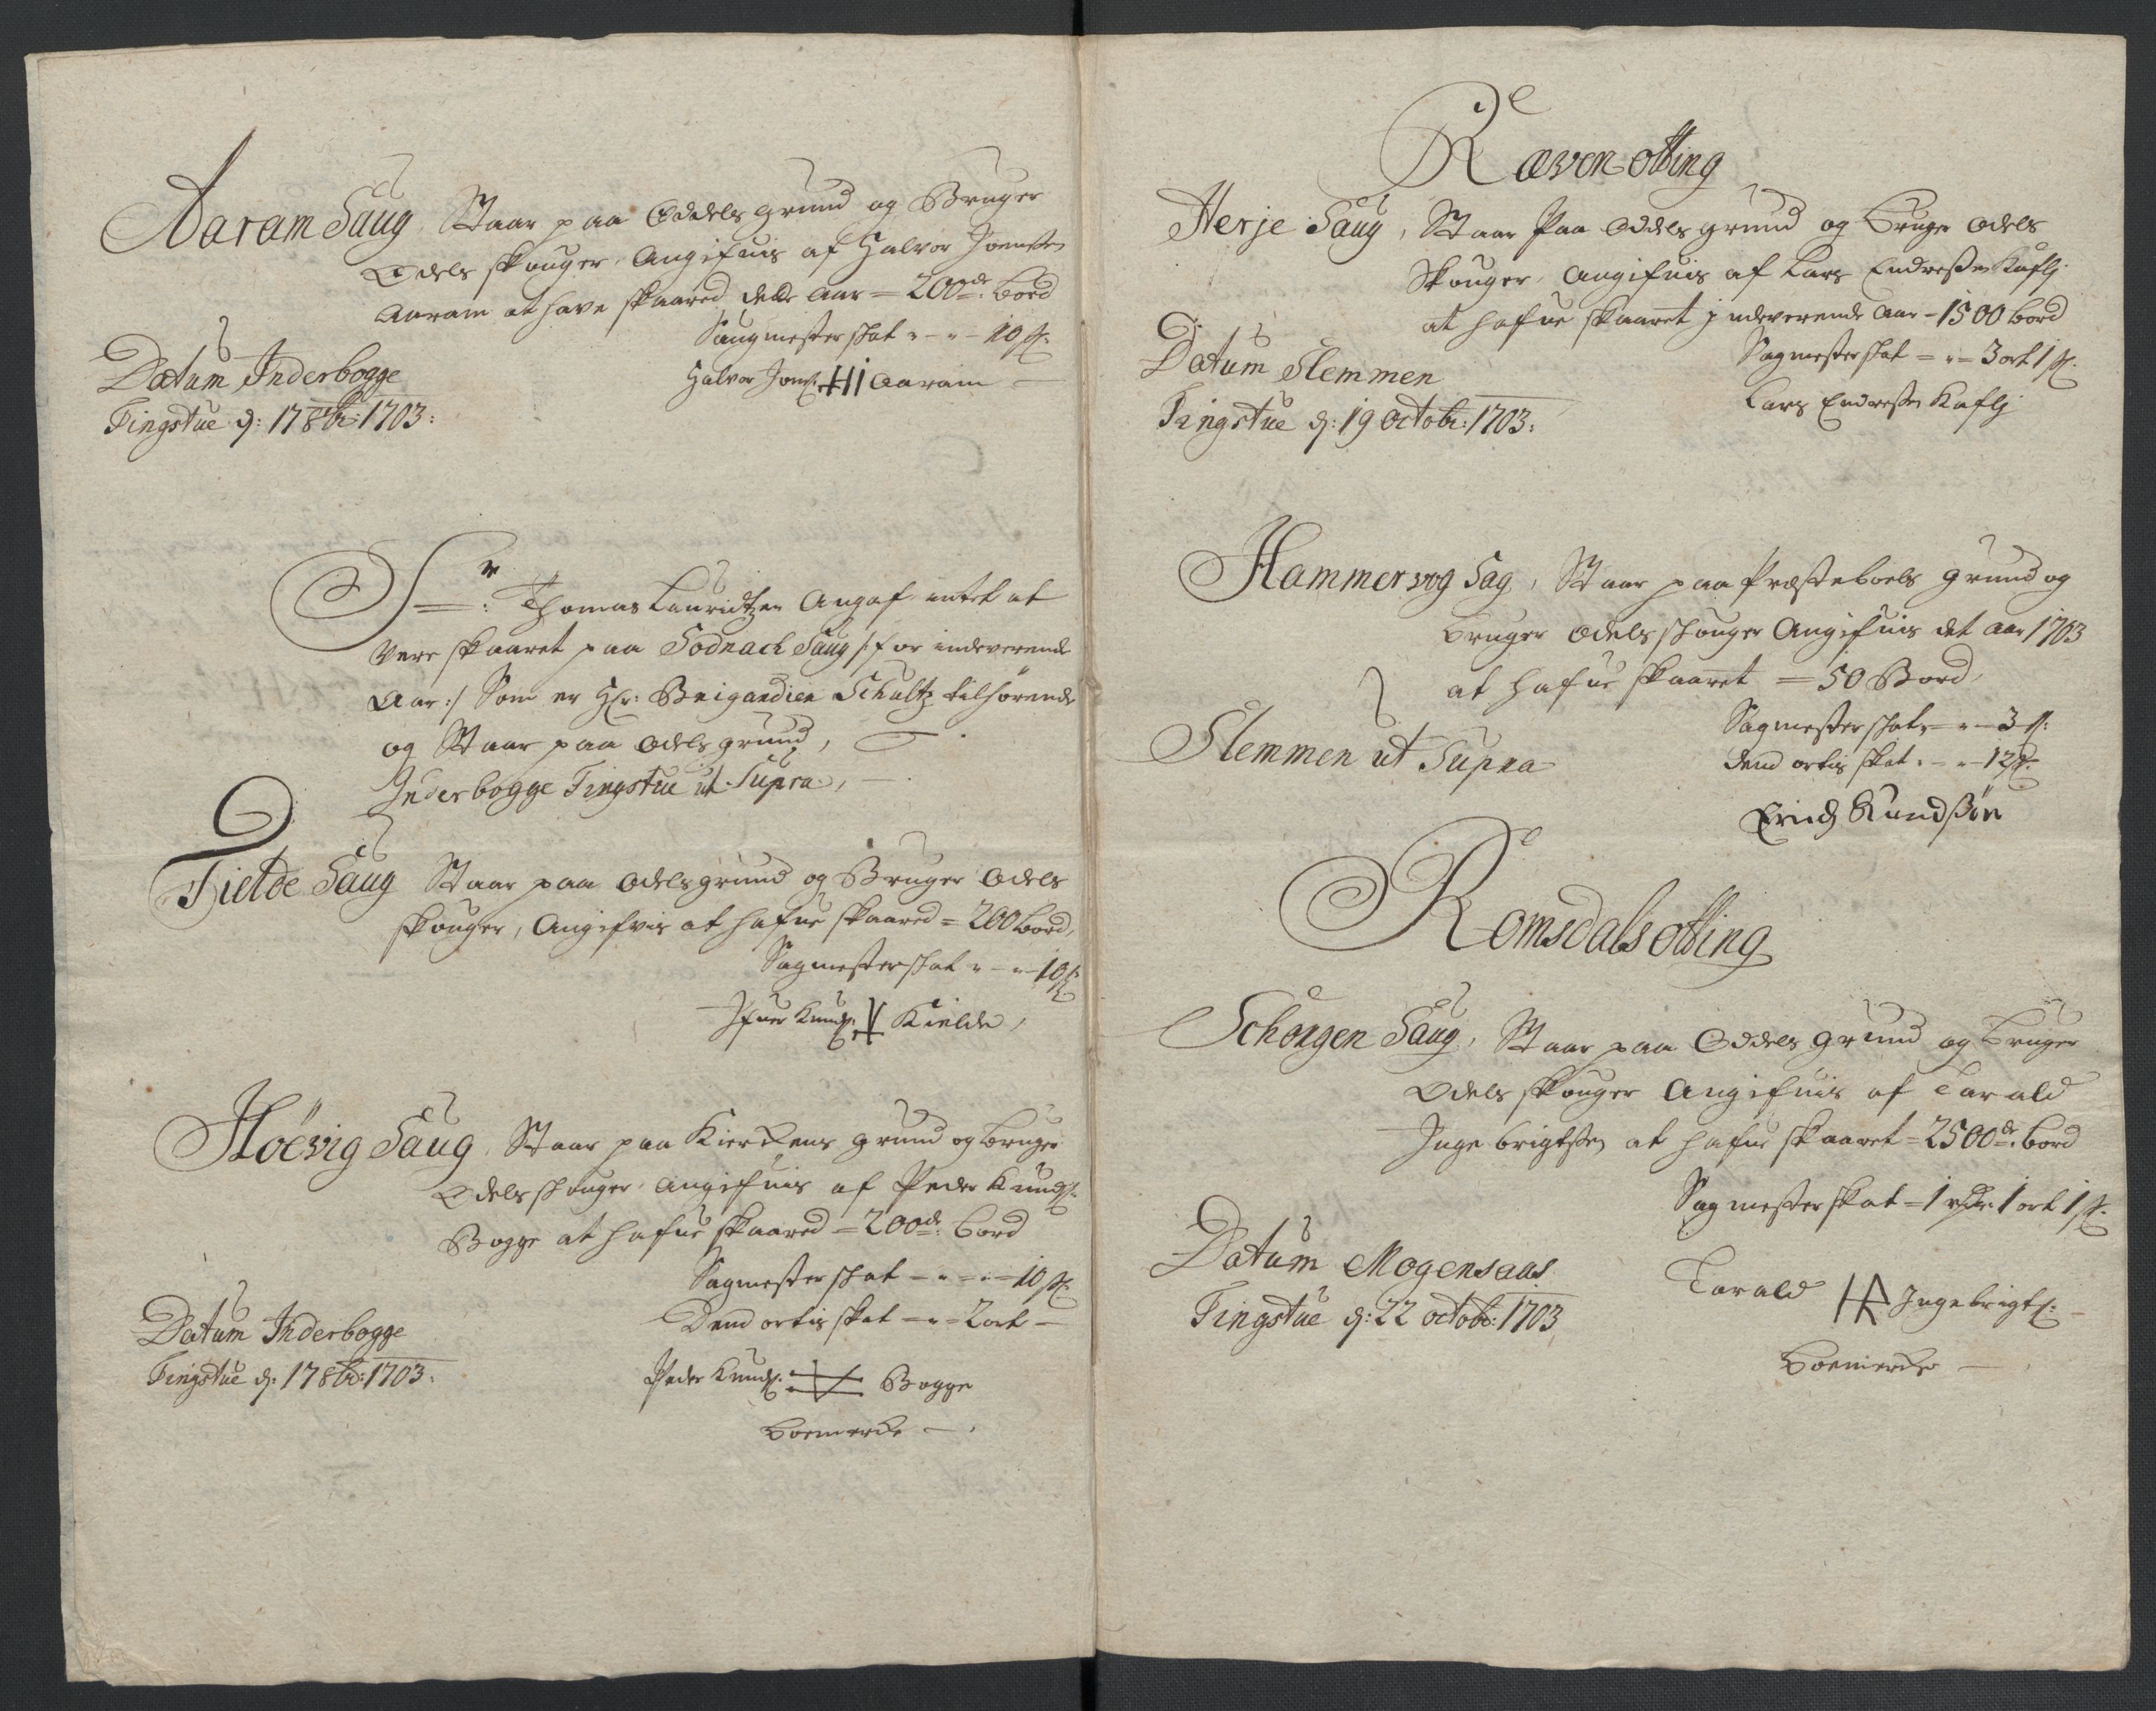 Aaram Saug, Staar paa Oddels grund og Bruger
Odels skouger, Angifuis af Halvor Joensen
Aaram at have skaared dette Aar = 200de: bord
Saugmesterskat " - " - 10 s:
Halvor Jons: HI Aaram —
Datum Inderbogge
Tingstue d: 17 8br: 1703:
Sr: Thomas Lauridtzen Angaf intet at
Vere skaaret paa Sodnach Saug /: for indeverende
Aar :/ Som er Hr: Brigandier Schultz tilhörende
og Staar paa Odels grund,
Inderbogge Tingstue ut Supra,
Fielde Saug Staar paa Odels grund og Bruger Odels
skouger, Angifvis at hafue skaared = 200 bord,
Sagmesterskat " - " - 10 s:
Ifuer Knuds: Kielde,
Höevig Saug, Staar paa Kierkens grund og bruger
Odels skouger, Angifuis af Peder Knuds:
Bogge at hafue skaared = 200de: bord
Sagmesterskat - " - " - 10 s:
Dend ortis skat - " - 2 ort -
Datum Inderbogge
Tingstue d: 17 8br: 1703:
Peder Knuds: Bogge
boemerke —
Ræven otting
Herje Saug, Staar Paa Oddels grund og Bruger Odels
Skouger, Angifuis af Lars Endresen Kaflj
at hafue skaaret j ndeverende Aar - 1500 bord
Sagmesterskat = " = 3 ort 1 s:
Datum Slemmen
Tingstue d: 19 Octobr: 1703:
Lars Endresen Kaflj
Hammervog Sag, Staar paa Præsteboels grund og
bruger Odels skouger Angifuis det Aar 1703
at hafue skaaret = 50 Bord,
Sagmesterskat - " - 3 s:
Slemmen ut Supra
Dend ortis skat " - " - 12 s:
Erich Knudssön
Romsdals otting
Schorgen Saug, Staar paa Oddels grund og bruger
Odels skouger Angifuis af Tarald
Ingebrigtsen at hafue skaaret = 2500de: bord
Sagmesterskat = 1 rdr: 1 ort 1 s:
Datum Mogensaas
Tingstue d: 22 octobr: 1703
Tarald Ingebrigts:
boemerke —